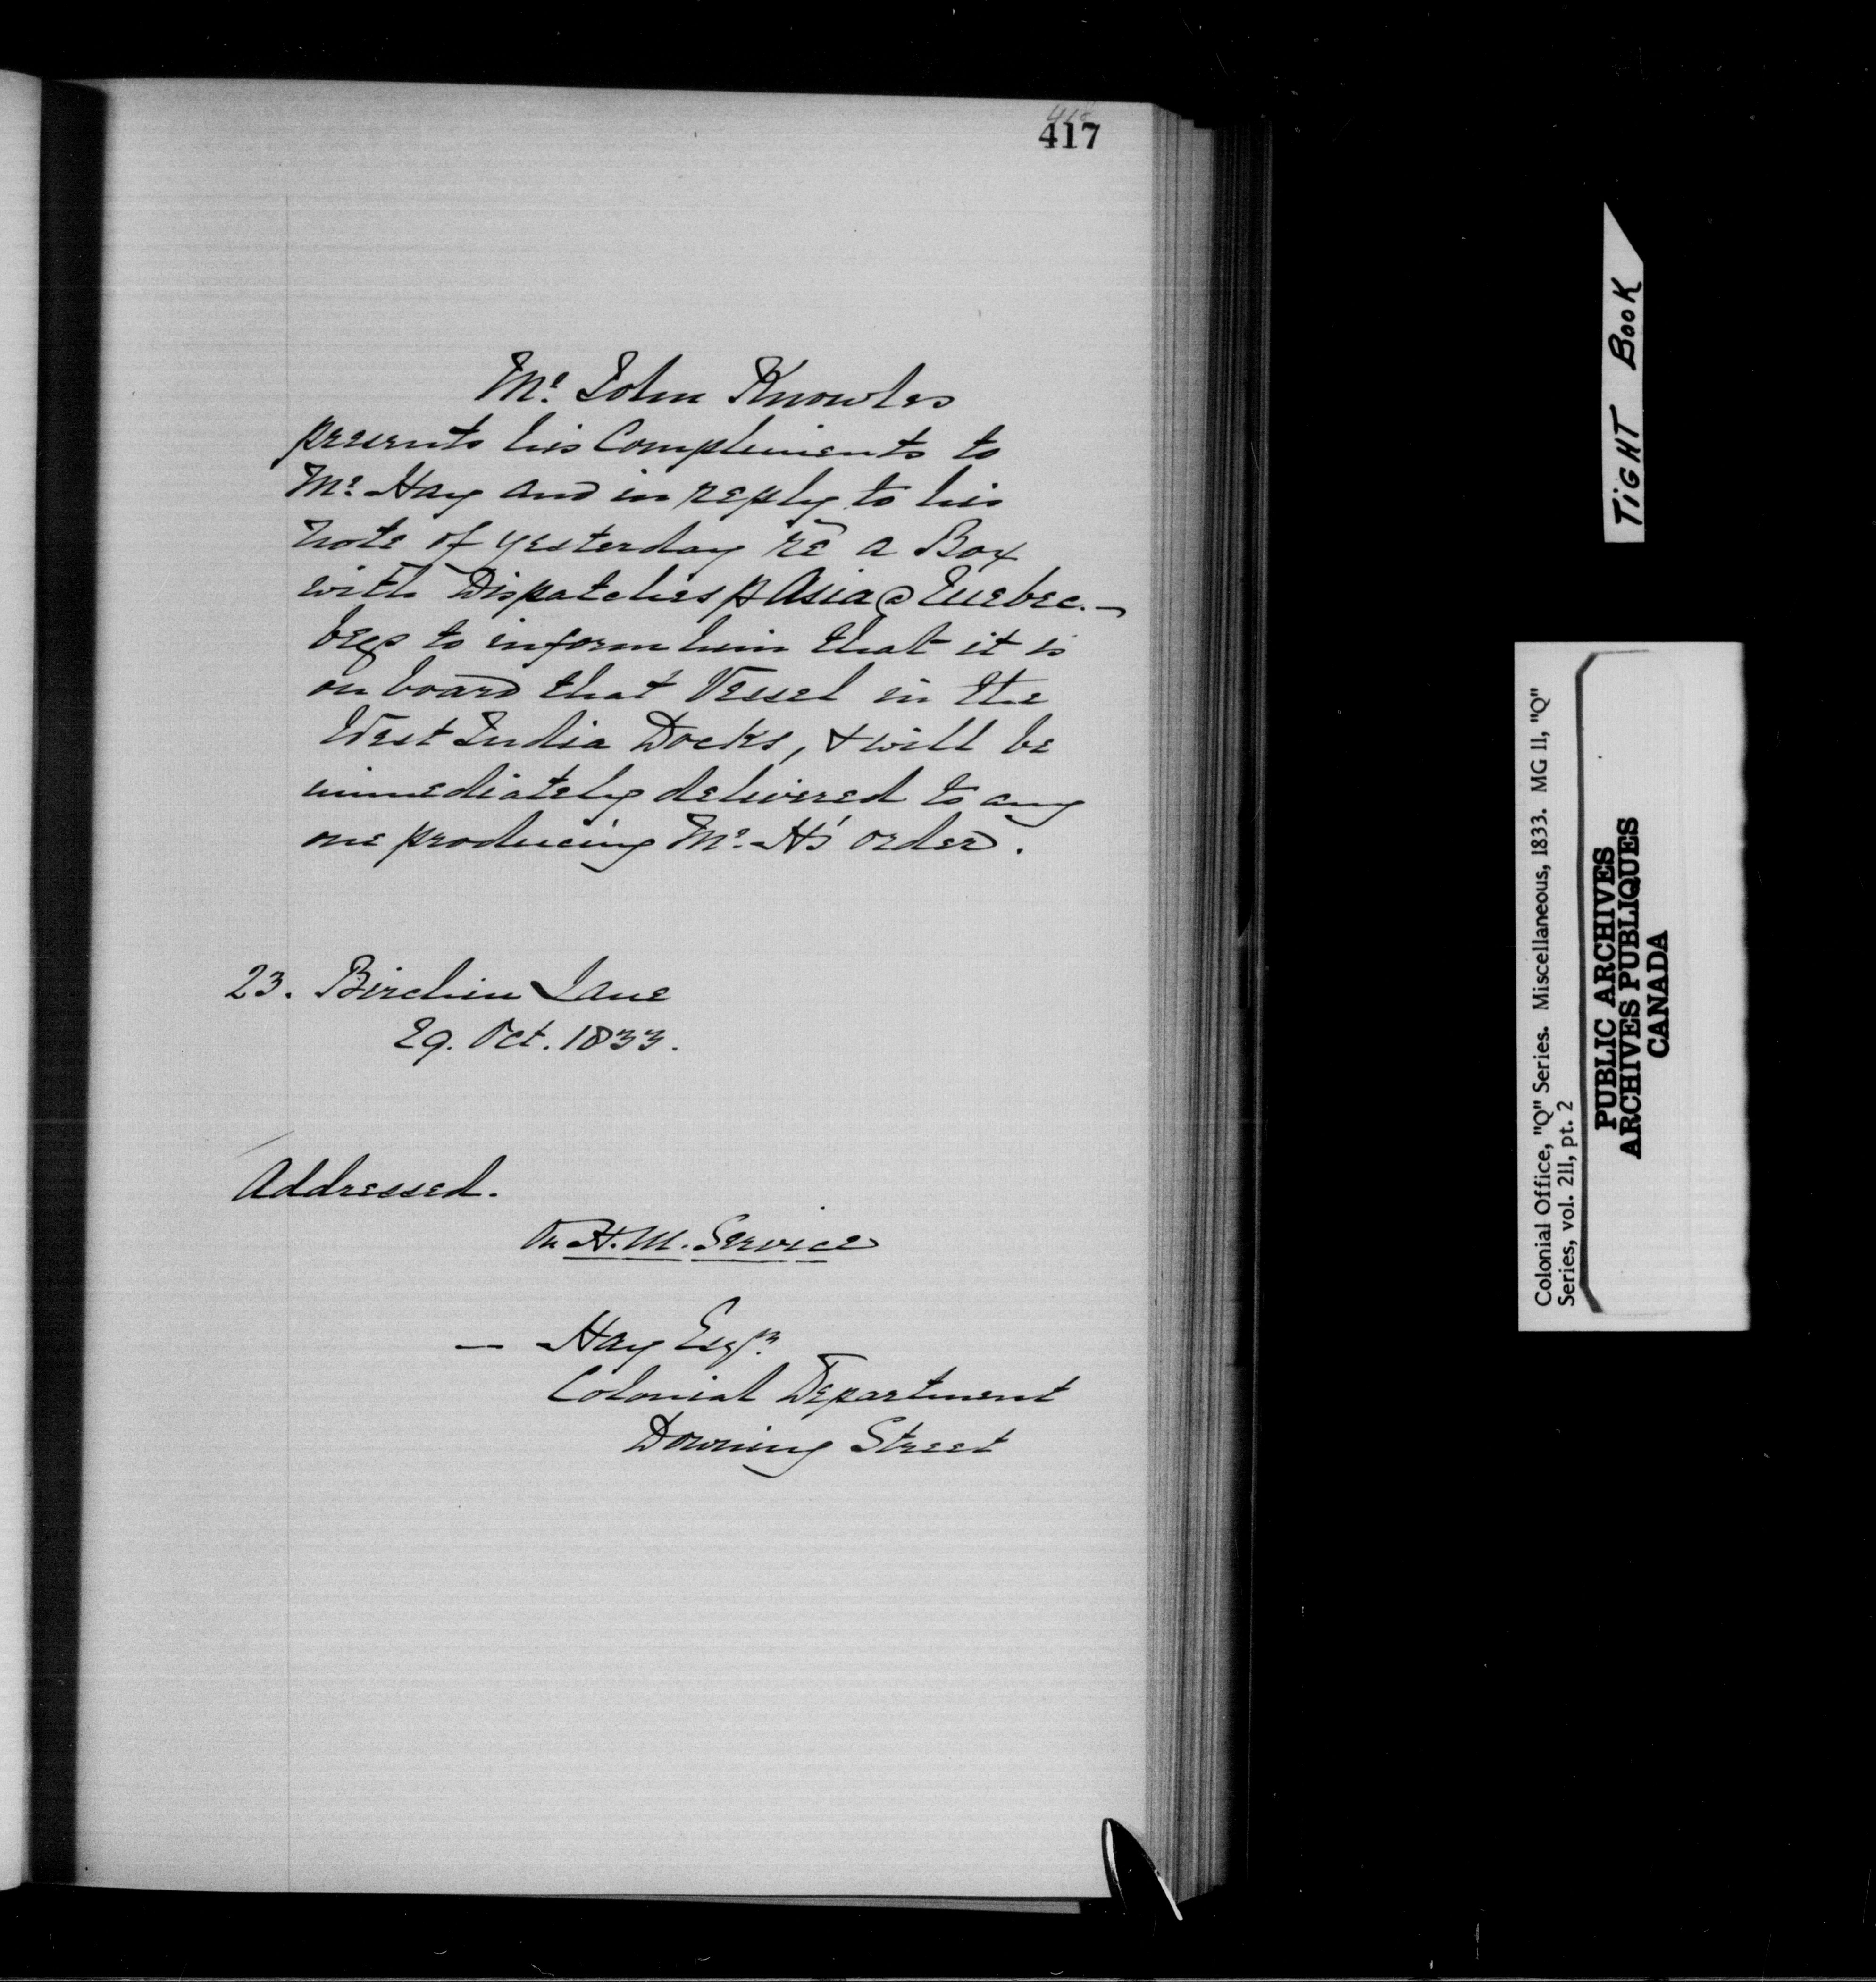 417
Mr. John Knowles
presents his Compliments to
Mr. Hay and in reply to his
note of yesterday re a Box
with Dispatches p Asia @ Quebec. —
begs to inform him that it is
on board that Vessel in the
West India Docks, & will be
immediately delivered to any
one producing Mr. H's order.
23. Birchin Lane
29. Oct. 1833.
Addressed.
On H.M. Service
— Hay Esqr.
Colonial Department
Downing Street
TIGHT BOOK
Colonial Office, "Q" Series. Miscellaneous, 1833. MG 11, "Q"
Series, vol. 211, pt. 2
PUBLIC ARCHIVES
ARCHIVES PUBLIQUES
CANADA